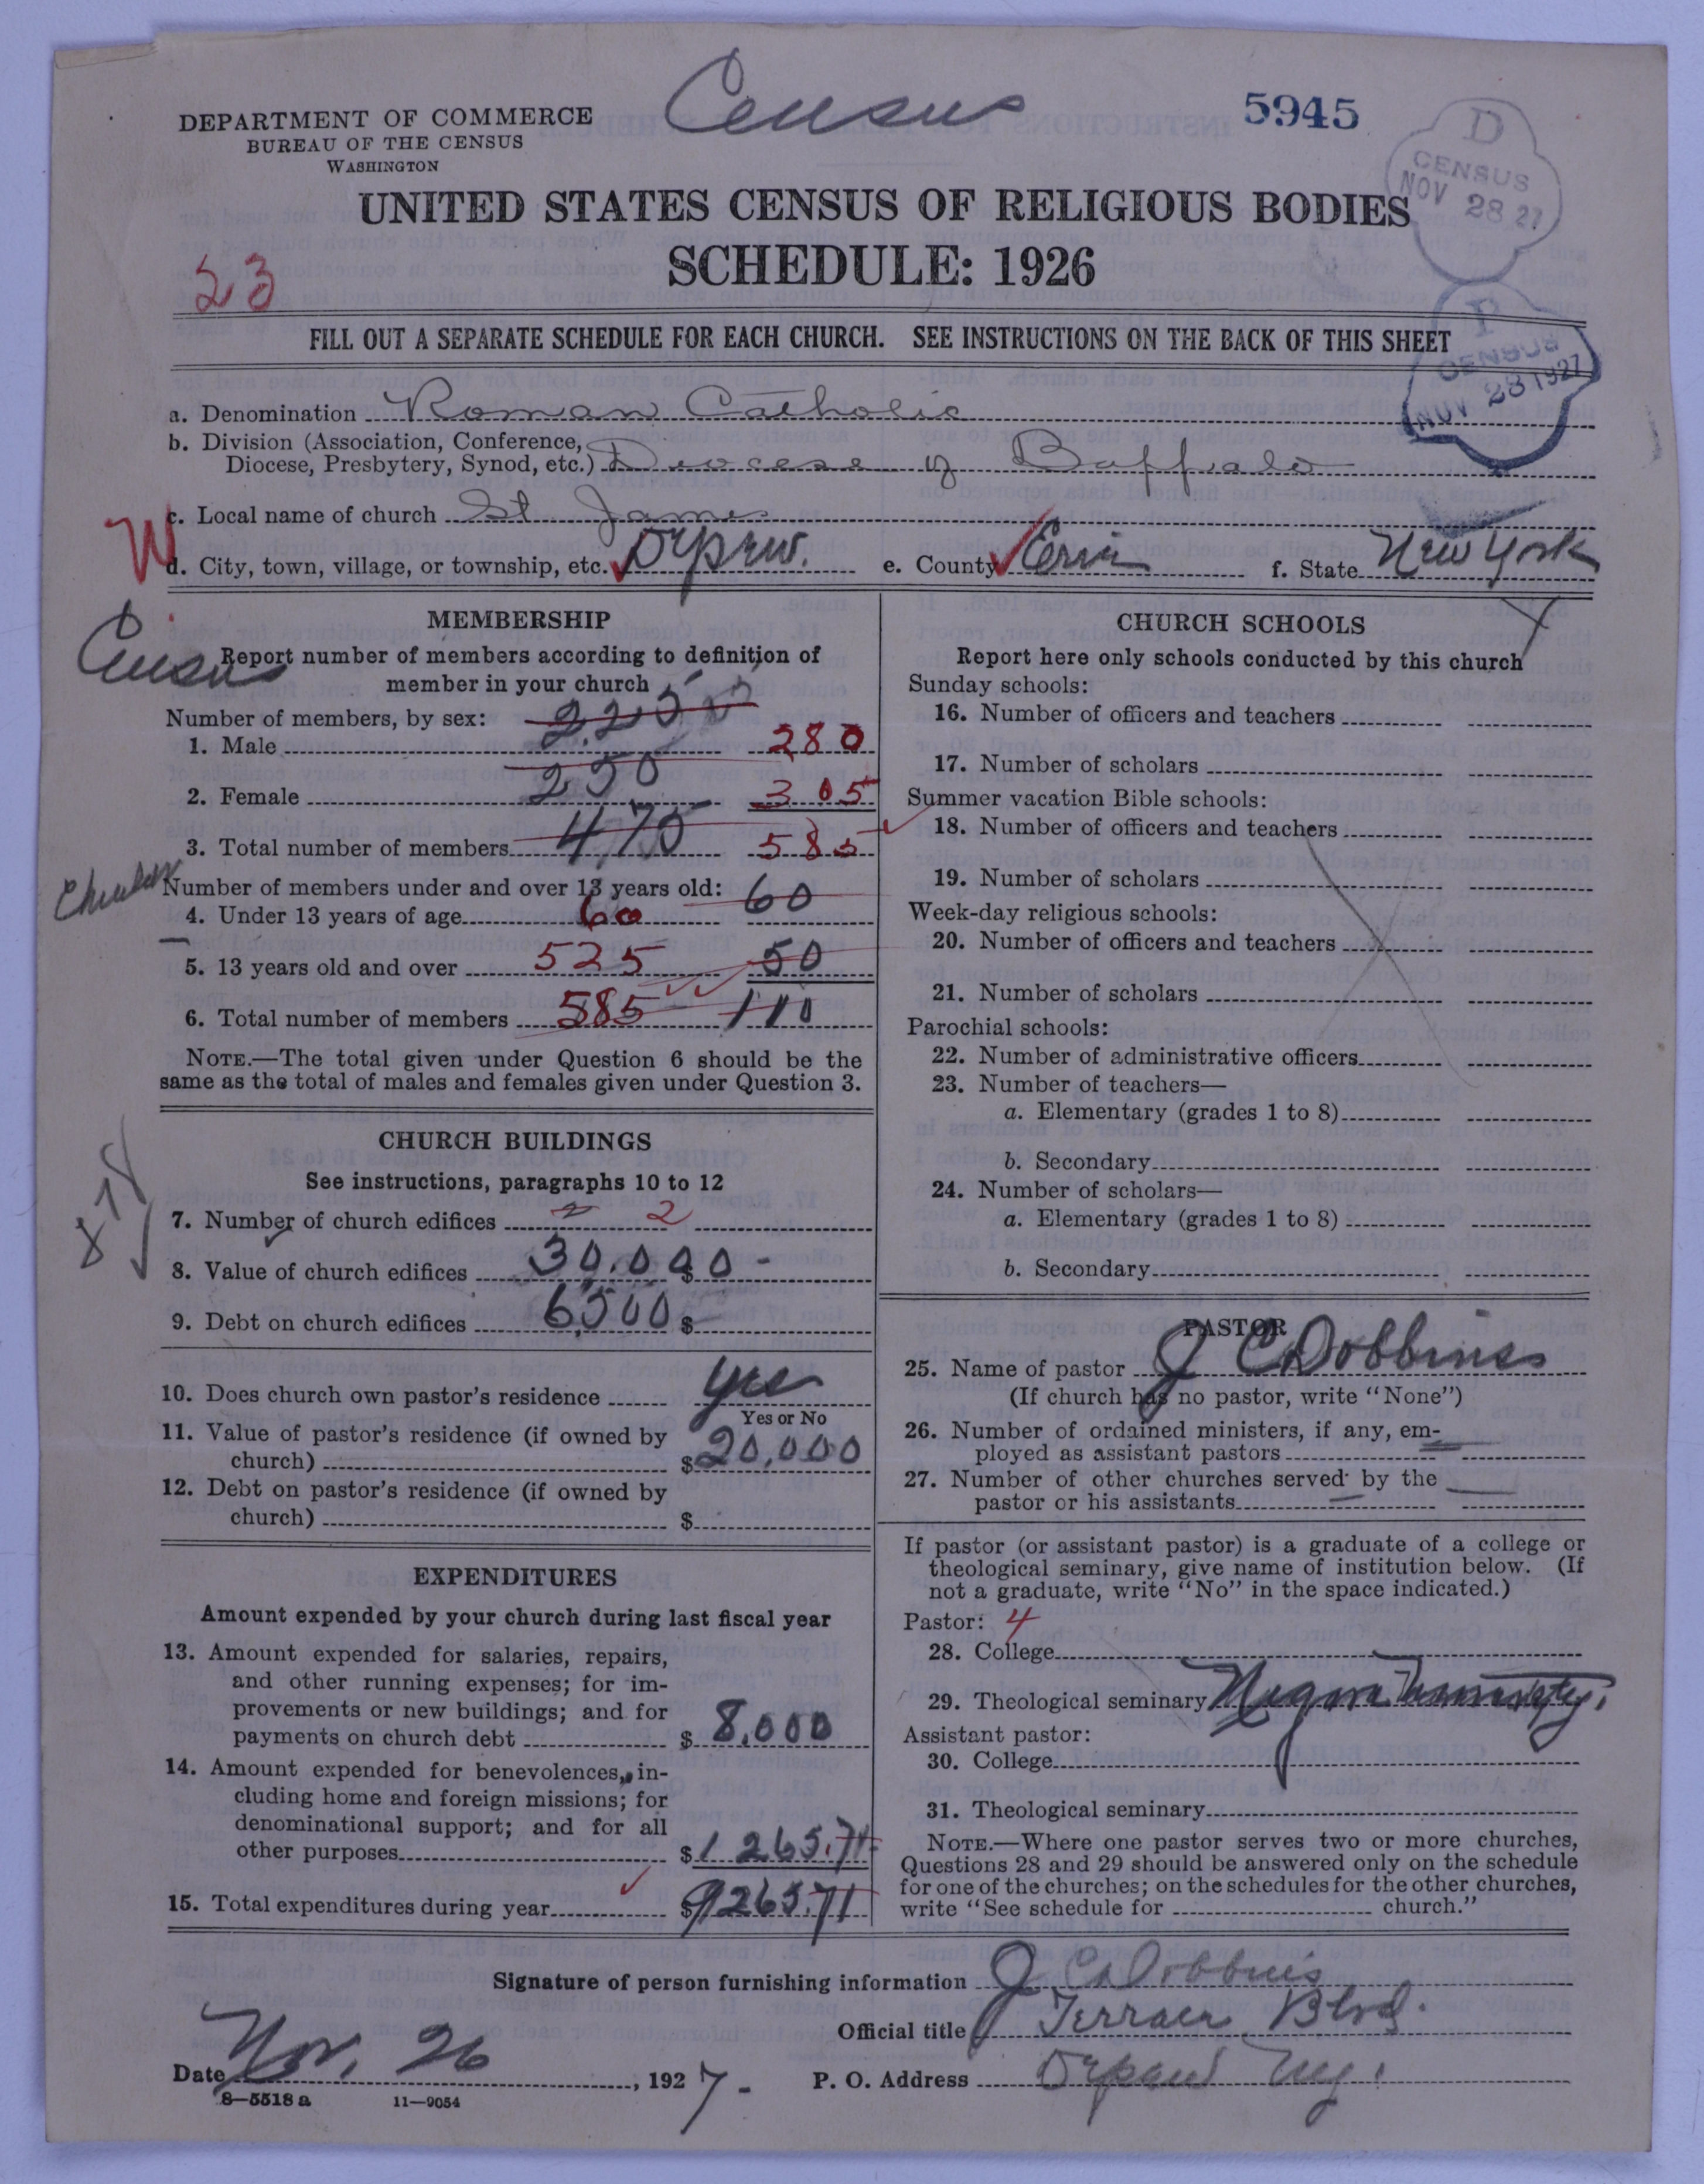 Census
5945
DEPARTMENT OF COMMERCE
BUREAU OF THE CENSUS
WASHINGTON
D
CENSUS
NOV 28 27
UNITED STATES CENSUS OF RELIGIOUS BODIES
SCHEDULE: 1926
23
P
CENSUS
NOV 28 1927
FILL OUT A SEPARATE SCHEDULE FOR EACH CHURCH. SEE INSTRUCTIONS ON THE BACK OF THIS SHEET
a. Denomination Roman Catholic
b. Division (Association, Conference,
Diocese, Presbytery, Synod, etc.) Diocese of Buffalo
c. Local name of church St James
W
d. City, town, village, or township, etc. Depew. e. County Erie f. State New York
MEMBERSHIP
Census
Report number of members according to definition of
member in your church
Number of members, by sex: 225
1. Male 280
250
2. Female 305
3. Total number of members 475 585
Number of members under and over 13 years old: 60
4. Under 13 years of age 60
5. 13 years old and over 525 50
6. Total number of members 585 110
NOTE.—The total given under Question 6 should be the
same as the total of males and females given under Question 3.
CHURCH BUILDINGS
See instructions, paragraphs 10 to 12
7. Number of church edifices 2 2
8. Value of church edifices 30,000 - $
9. Debt on church edifices 6,500 $
10. Does church own pastor's residence yes
Yes or No
11. Value of pastor's residence (if owned by
church) $ 20,000
12. Debt on pastor's residence (if owned by
church) $
EXPENDITURES
Amount expended by your church during last fiscal year
13. Amount expended for salaries, repairs,
and other running expenses; for im-
provements or new buildings; and for
payments on church debt $ 8,000
14. Amount expended for benevolences, in-
cluding home and foreign missions; for
denominational support; and for all
other purposes $ 1 265.71
15. Total expenditures during year $ 9265.71
CHURCH SCHOOLS
Report here only schools conducted by this church
Sunday schools:
16. Number of officers and teachers
17. Number of scholars
Summer vacation Bible schools:
18. Number of officers and teachers
19. Number of scholars
Week-day religious schools:
20. Number of officers and teachers
21. Number of scholars
Parochial schools:
22. Number of administrative officers
23. Number of teachers—
a. Elementary (grades 1 to 8)
b. Secondary
24. Number of scholars—
a. Elementary (grades 1 to 8)
b. Secondary
PASTOR
25. Name of pastor J C Dobbins
(If church has no pastor, write "None")
26. Number of ordained ministers, if any, em-
ployed as assistant pastors
27. Number of other churches served by the
pastor or his assistants
If pastor (or assistant pastor) is a graduate of a college or
theological seminary, give name of institution below. (If
not a graduate, write "No" in the space indicated.)
Pastor: 4
28. College
29. Theological seminary
Assistant pastor:
30. College
31. Theological seminary
NOTE.—Where one pastor serves two or more churches,
Questions 28 and 29 should be answered only on the schedule
for one of the churches; on the schedules for the other churches,
write "See schedule for church."
Signature of person furnishing information J C Dobbins
Official title Terrace Blvd.
Date Nov. 26, 1927- P. O. Address Depew N.Y.
8—5518 a 11—9054